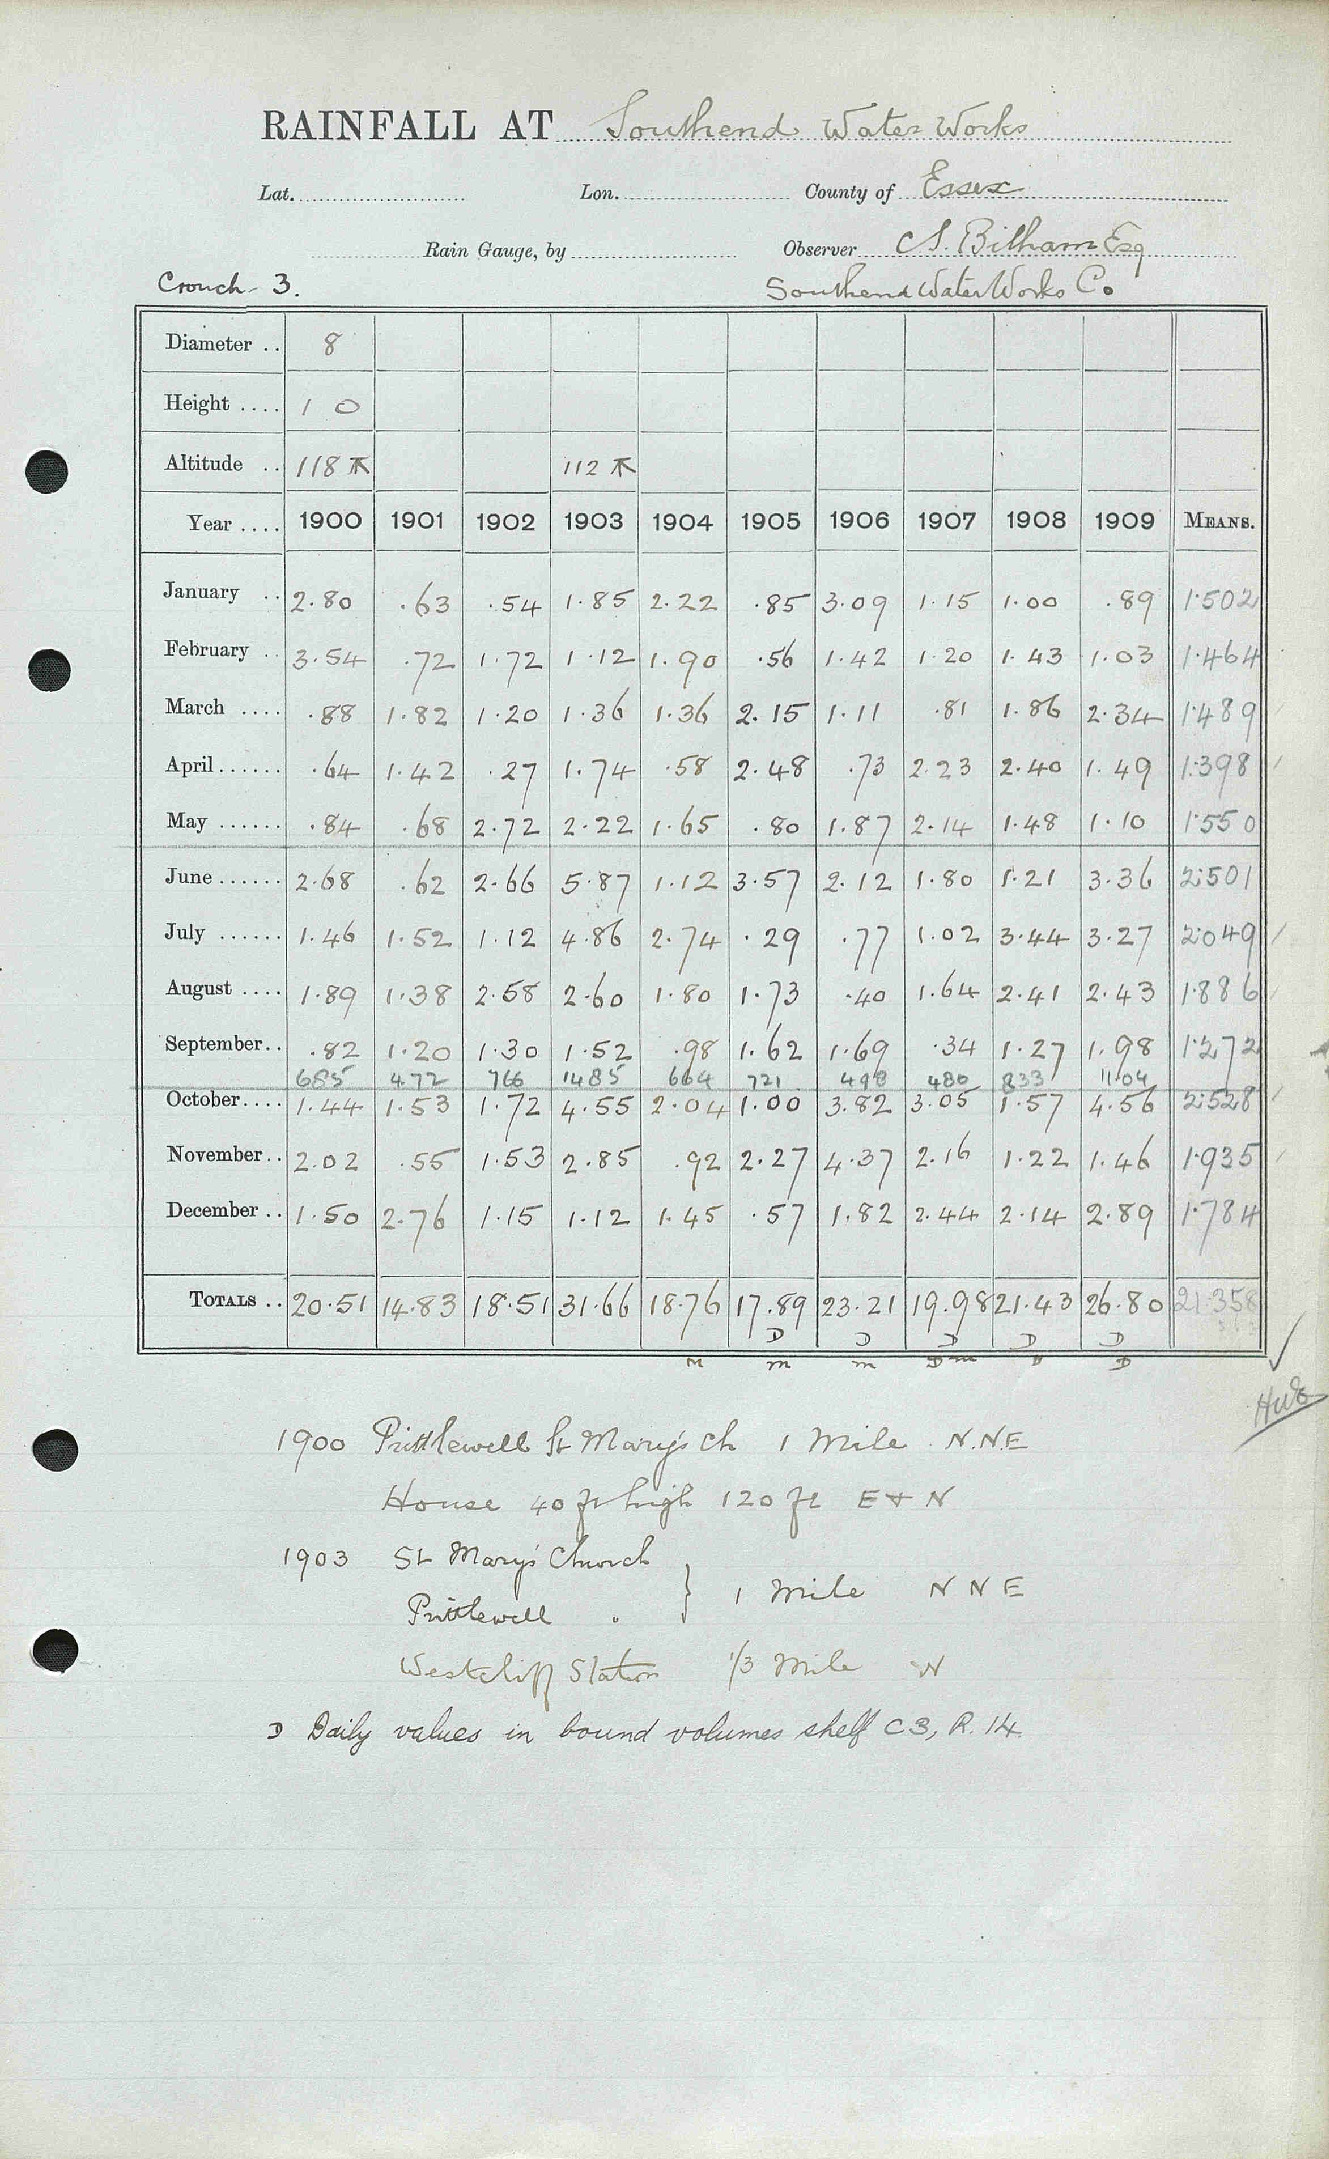 RAINFALL AT Southend Water Works
Lat. Lon. County of Essex
Rain Gauge, by Observer C S. Bilham Esq
Crouch - 3. Southend Water Works Co.
Diameter .. 8
Height .... 1 0
Altitude .. 118 112
Year .... 1900 1901 1902 1903 1904 1905 1906 1907 1908 1909 MEANS.
January .. 2.80 .63 .54 1.85 2.22 .85 3.09 1.15 1.00 .89 1.502
February .. 3.54 .72 1.72 1.12 1.90 .56 1.42 1.20 1.43 1.03 1.464
March .... .88 1.82 1.20 1.36 1.36 2.15 1.11 .81 1.86 2.34 1.489
April...... .64 1.42 .27 1.74 .58 2.48 .73 2.23 2.40 1.49 1.398
May ...... .84 .68 2.72 2.22 1.65 .80 1.87 2.14 1.48 1.10 1.550
June ...... 2.68 .62 2.66 5.87 1.12 3.57 2.12 1.80 1.21 3.36 2.501
July ...... 1.46 1.52 1.12 4.86 2.74 .29 .77 1.02 3.44 3.27 2.049
August .... 1.89 1.38 2.58 2.60 1.80 1.73 .40 1.64 2.41 2.43 1.886
September.. .82 1.20 1.30 1.52 .98 1.62 1.69 .34 1.27 1.98 1.272
685 472 766 1485 664 721 498 480 833 1104
October.... 1.44 1.53 1.72 4.55 2.04 1.00 3.82 3.05 1.57 4.56 2.528
November.. 2.02 .55 1.53 2.85 .92 2.27 4.37 2.16 1.22 1.46 1.935
December .. 1.50 2.76 1.15 1.12 1.45 .57 1.82 2.44 2.14 2.89 1.784
TOTALS .. 20.51 14.83 18.51 31.66 18.76 17.89 23.21 19.98 21.43 26.80 21.358
D D D D D
M m m D m D D
1900 Prittlewell St Mary's Ch 1 Mile N.N.E
House 40 ft high 120 ft E & N
1903 St Mary's Church
Prittlewell " } 1 Mile N N E
Westcliff Station 1/3 Mile N
D Daily values in bound volumes shelf C3, R. 14